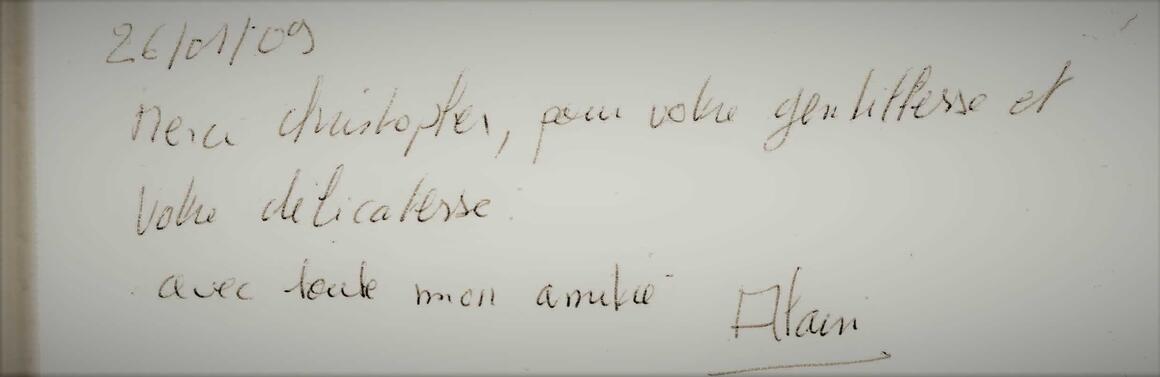 26/01/09
Merci Christopher, pour votre gentillesse et
votre délicatesse.
avec toute mon amitié
Alain